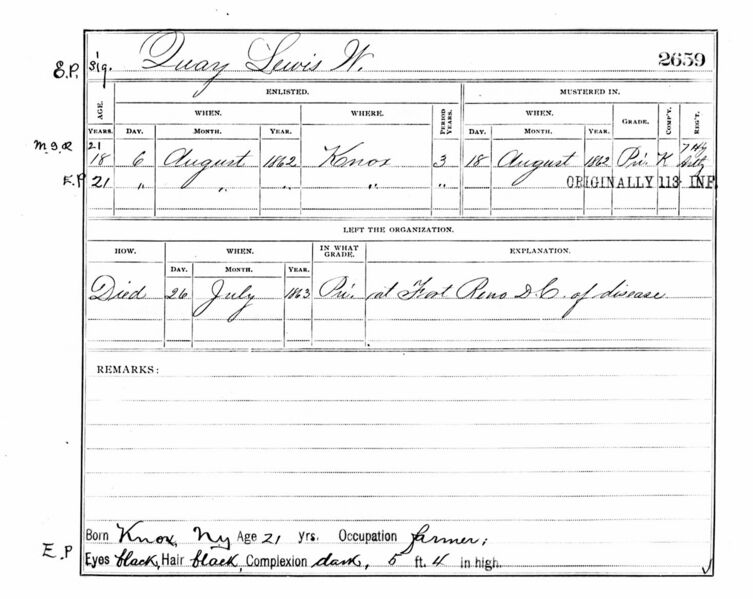 E.P. Sig. Quay Lewis W. 2659
ENLISTED. MUSTERED IN.
AGE. WHEN. WHERE. PERIOD YEARS. WHEN. GRADE. COMP'Y. REG'T.
YEARS. DAY. MONTH. YEAR. DAY. MONTH. YEAR.
21
M.I.R 18 6 August 1862 Knox 3 18 August 1862 Pri. K 7 Hy Arty
E.P 21 " " " " " ORIGINALLY 113 INF
LEFT THE ORGANIZATION.
HOW. WHEN. IN WHAT GRADE. EXPLANATION.
DAY. MONTH. YEAR.
Died 26 July 1863 Pri. at Fort Reno D.C. of disease
REMARKS:
Born Knox, Ny Age 21 yrs. Occupation farmer;
E.P Eyes black, Hair black, Complexion dark, 5 ft. 4 in high.